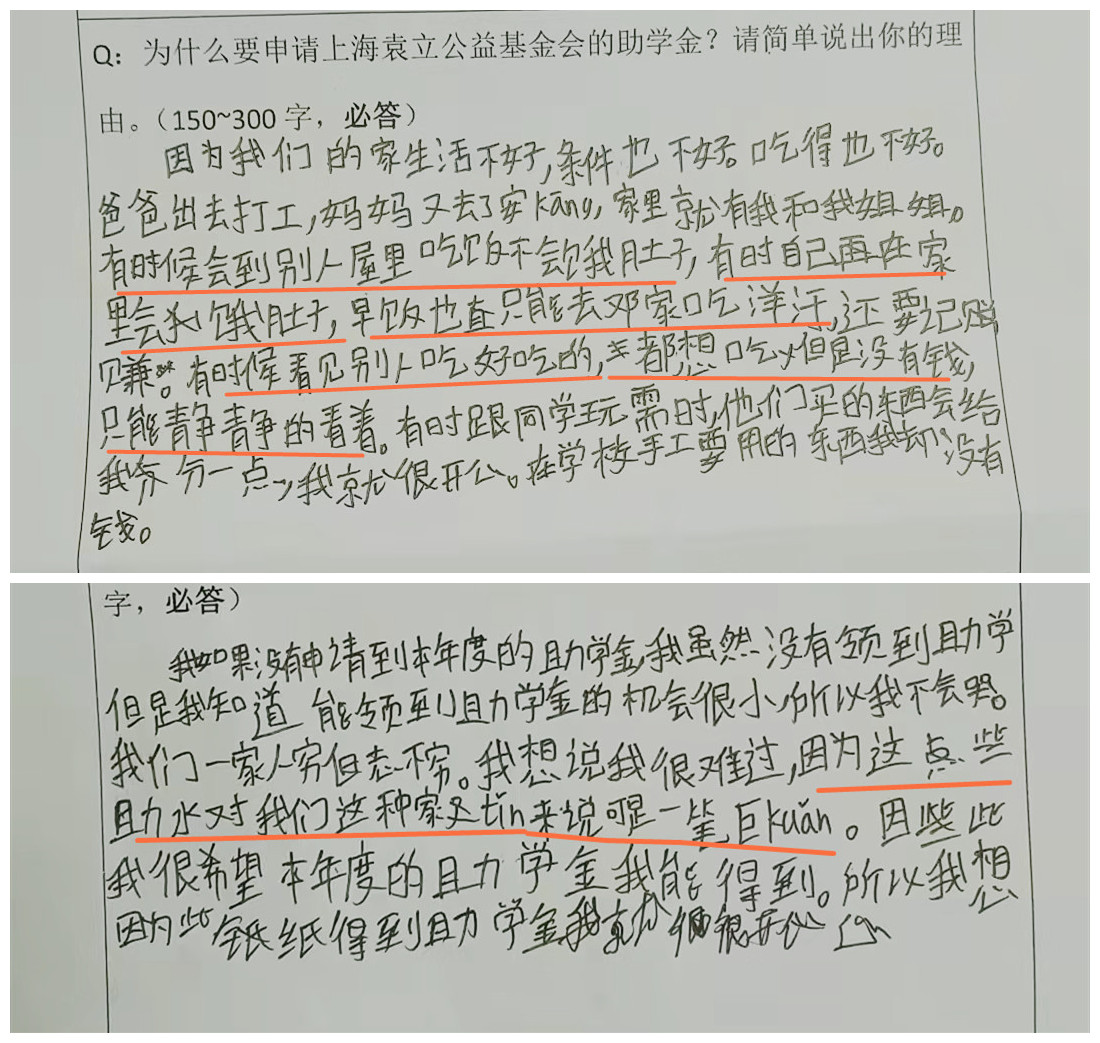 Q：为什么要申请上海袁立公益基金会的助学金？请简单说出你的理
由。（150~300 字，必答）
因为我们的家生活不好,条件也不好。吃得也不好。
爸爸出去打工,妈妈又去了安kāng,家里就有我和我姐姐。
有时候会到别人屋里吃饭不会饿我肚子,有时自己再在家
里会 饿我肚子,早饭也直只能去邓家吃洋汗,还要记账
赚。有时候看见别人吃好吃的, 都想吃,但是没有钱,
只能静静的看着。有时跟同学玩需时,他们买的东西会给
我分一点,我就很开心。在学校手工要用的东西我却没有
钱。
字，必答）
我如果没有申请到本年度的助学金,我虽然没有领到助学
但是我知道 能领到助学金的机会很小,所以我不会哭。
我们一家人穷但志不穷。我想说我很难过,因为这点些
助力水对我们这种家 tín来说可是一笔巨kuǎn。因些些
我很希望本年度的助学金我能得到。所以我想
因为些 纸得到助学金我就 很开心